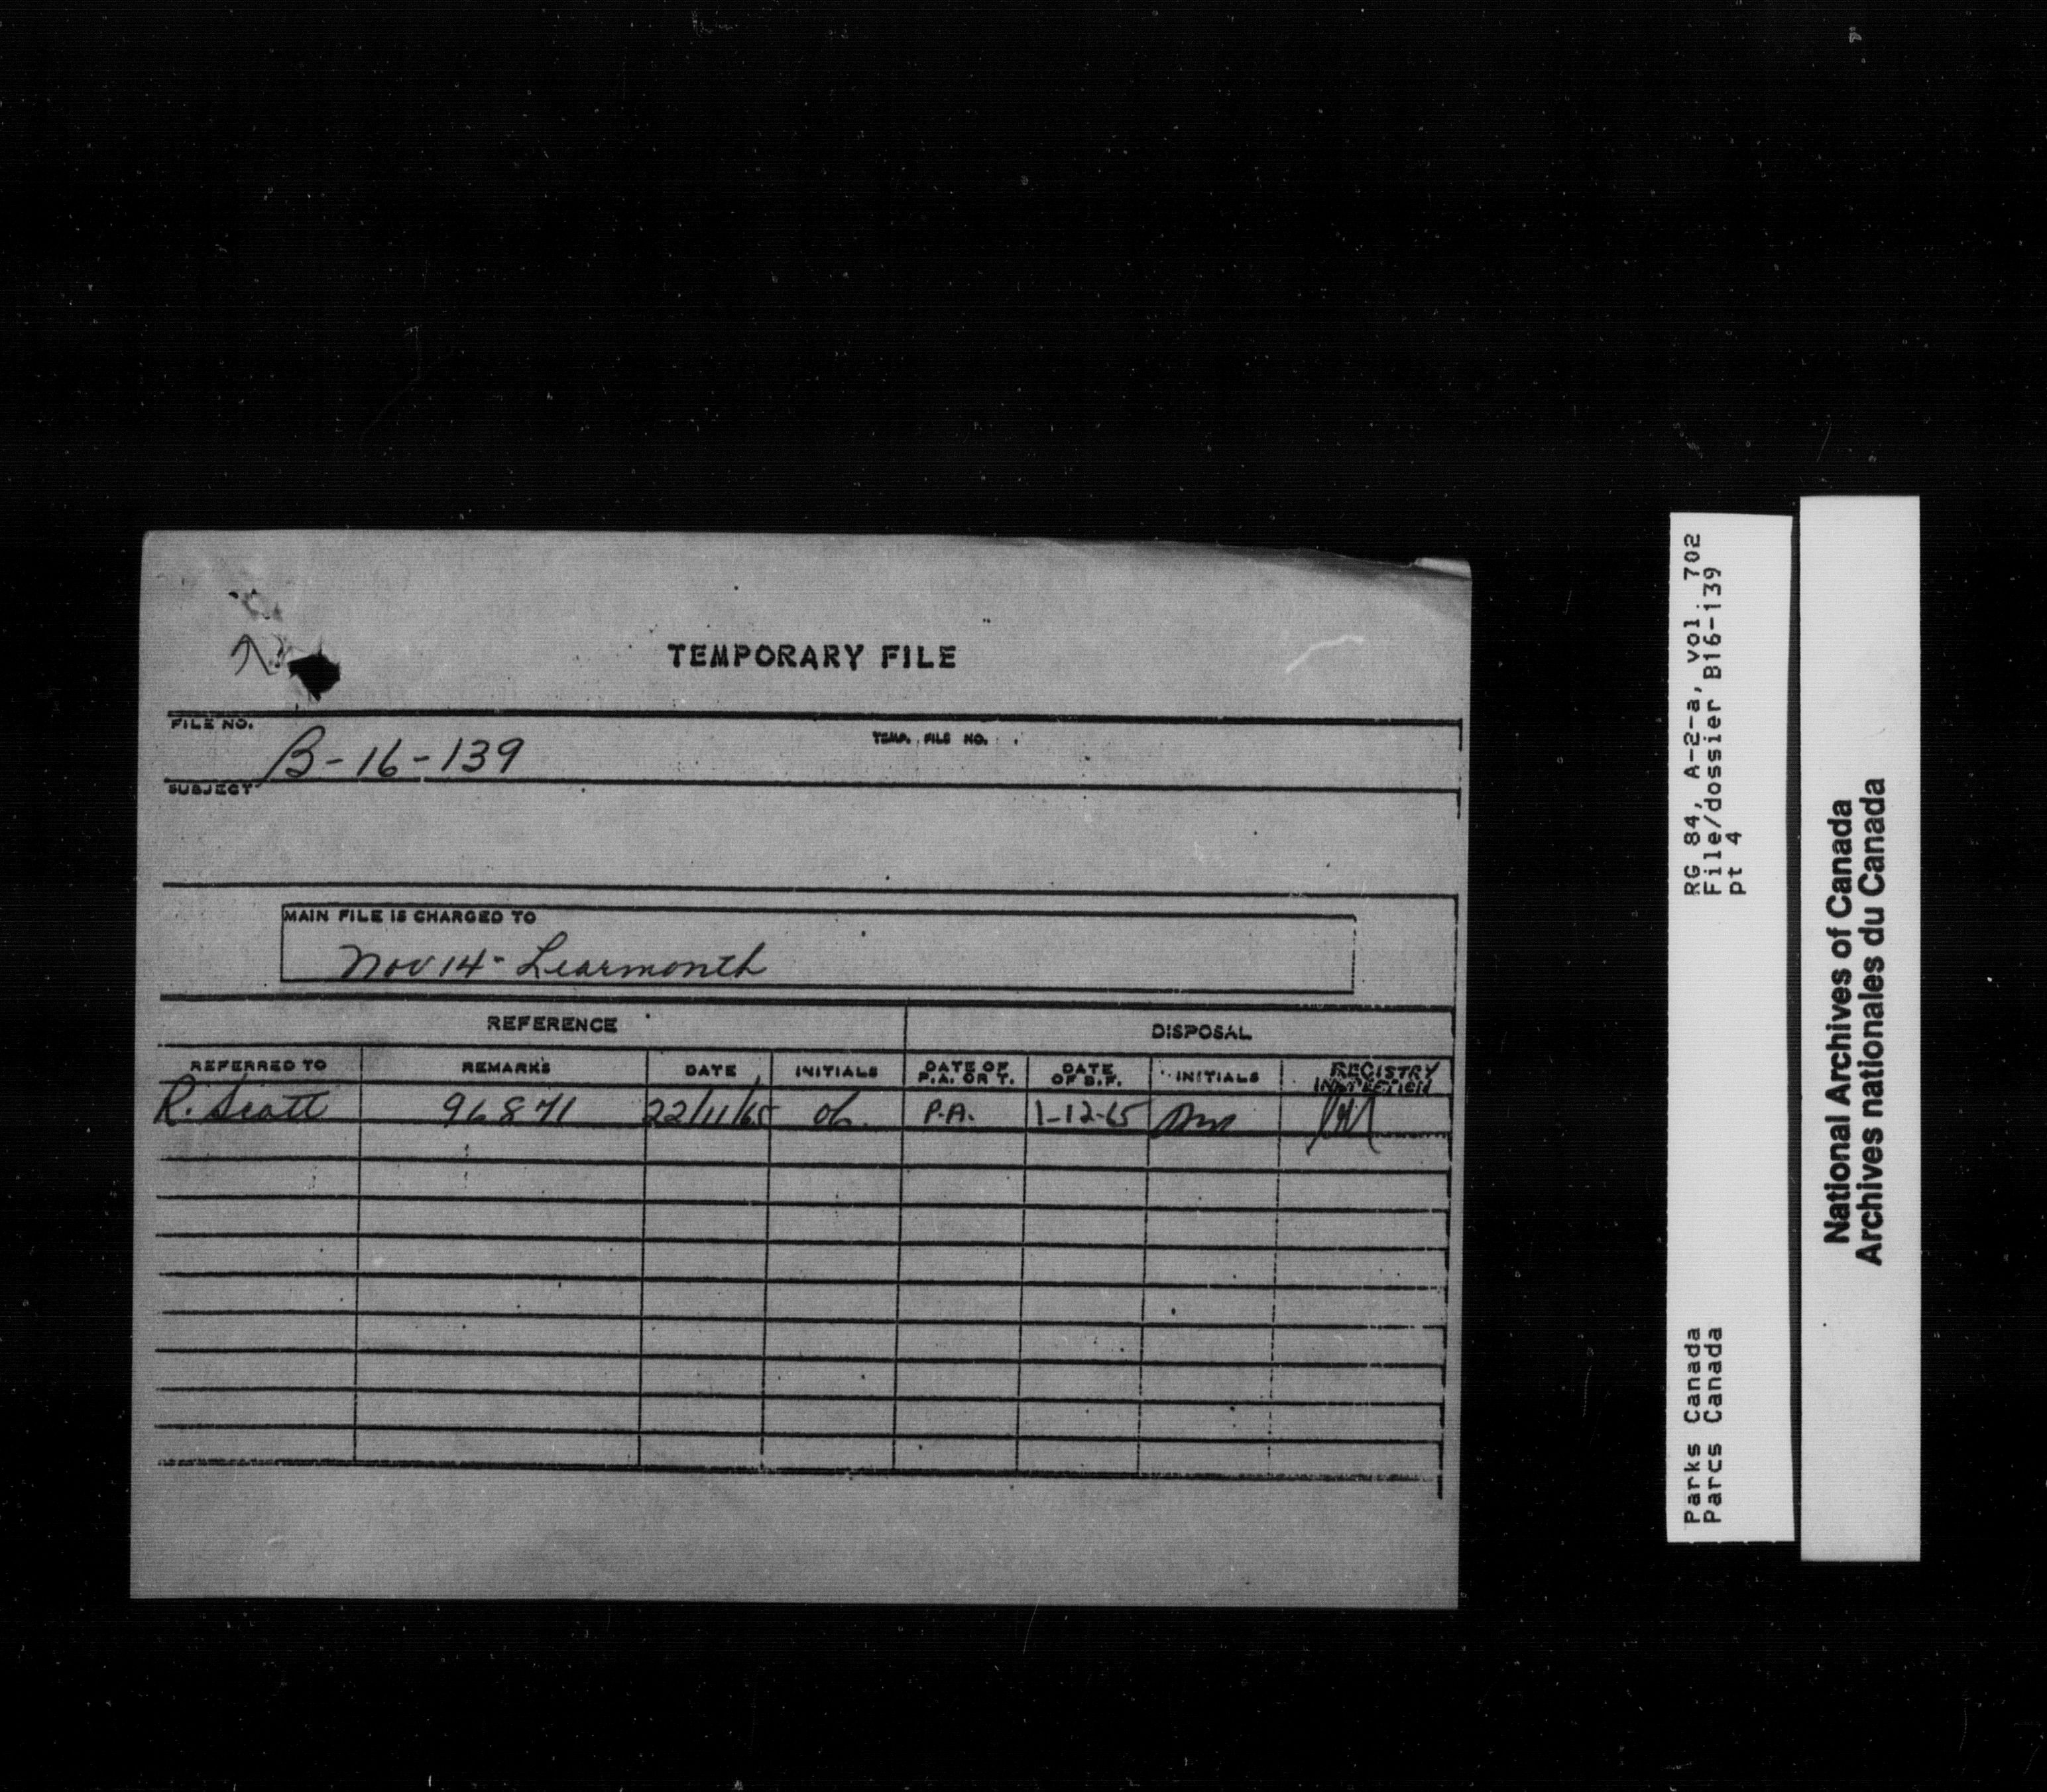 TEMPORARY FILE
FILE NO.
B-16-139
TEMP. FILE NO.
SUBJECT
MAIN FILE IS CHARGED TO
Nov 14 - Learmonth
REFERENCE DISPOSAL
REFERRED TO REMARKS DATE INITIALS DATE OF P.A. OR T. DATE OF B.F. INITIALS REGISTRY INSPECTION
R. Scott 96871 22/11/65 P.A. 1-12-65
RG 84, A-2-a, vol. 702
File/dossier B16-139
pt 4
Parks Canada
Parcs Canada
National Archives of Canada
Archives nationales du Canada